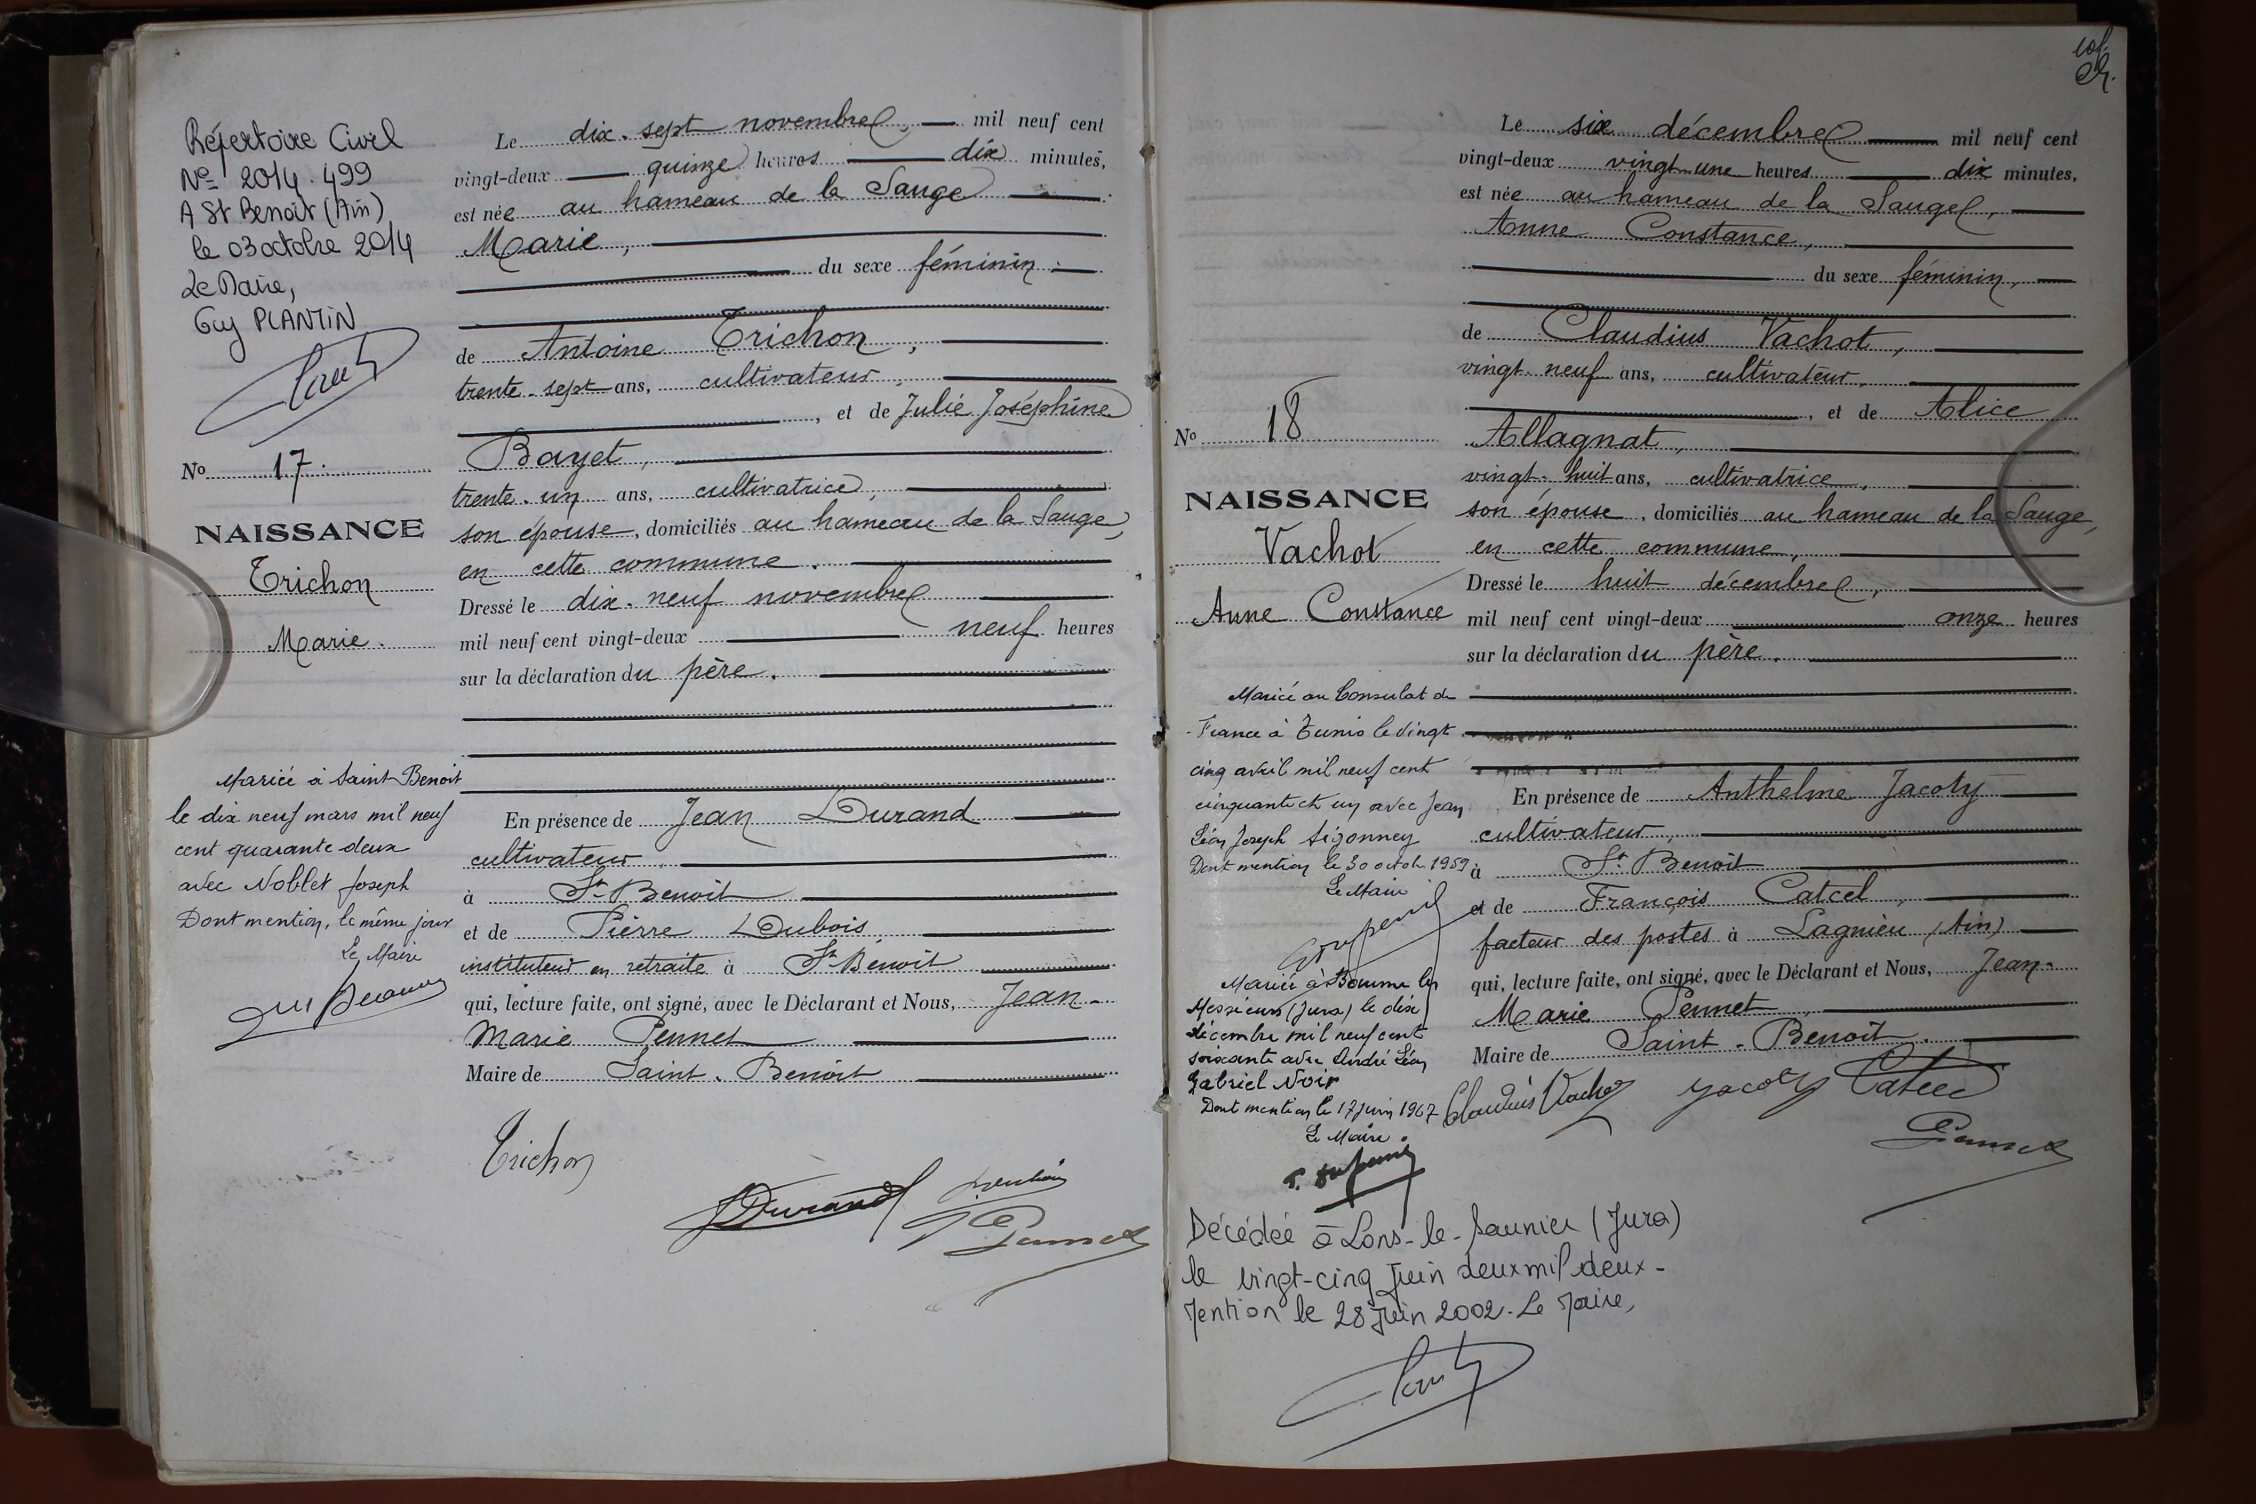 Répertoire Civil
No 2014.499
A St Benoît (Ain)
le 03 octobre 2014
Le Maire,
Guy PLANTIN
No 17.
NAISSANCE
Trichon
Marie.
Mariée à Saint Benoit
le dix neuf mars mil neuf
cent quarante deux
avec Noblet Joseph
Dont mention, le même jour
Le Maire
Le dix-sept novembre, mil neuf cent
vingt-deux quinze heures dix minutes,
est née au hameau de la Sauge
Marie,
du sexe féminin.
de Antoine Trichon,
trente-sept ans, cultivateur,
, et de Julie Joséphine
Bayet,
trente-un ans, cultivatrice,
son épouse, domiciliés au hameau de la Sauge,
en cette commune.
Dressé le dix-neuf novembre
mil neuf cent vingt-deux neuf heures
sur la déclaration du père.
En présence de Jean Durand
cultivateur,
à St Benoît
et de Pierre Dubois,
instituteur en retraite à St Benoît
qui, lecture faite, ont signé, avec le Déclarant et Nous, Jean-
Marie Pennet
Maire de Saint-Benoît
Trichon
JDurand
Pennet
No 18
NAISSANCE
Vachot
Anne Constance
Mariée au Consulat de
France à Tunis le vingt
cinq avril mil neuf cent
cinquante et un avec Jean
Léon Joseph Sigonney
Dont mention le 30 octob. 1959
Le Maire
Mariée à Baume les
Messieurs (Jura) le dix
décembre mil neuf cent
soixante avec André Léon
Gabriel Noir
Dont mention le 17 juin 1967
Le Maire.
Le six décembre mil neuf cent
vingt-deux vingt-une heures dix minutes,
est née au hameau de la Sauge,
Anne Constance,
du sexe féminin,
de Claudius Vachot,
vingt-neuf ans, cultivateur,
, et de Alice
Allagnat,
vingt-huit ans, cultivatrice,
son épouse, domiciliés au hameau de la Sauge,
en cette commune,
Dressé le huit décembre,
mil neuf cent vingt-deux onze heures
sur la déclaration du père.
En présence de Anthelme Jacoty
cultivateur,
à St Benoît
et de François Catcel,
facteur des postes à Lagnieu (Ain)
qui, lecture faite, ont signé, avec le Déclarant et Nous, Jean-
Marie Pennet
Maire de Saint-Benoît.
Claudius Vachot Jacoty Catcel
Pennet
Décédée à Lons-le-Saunier (Jura)
le vingt-cinq Juin deux mil deux-
Mention le 28 Juin 2002. Le Maire,